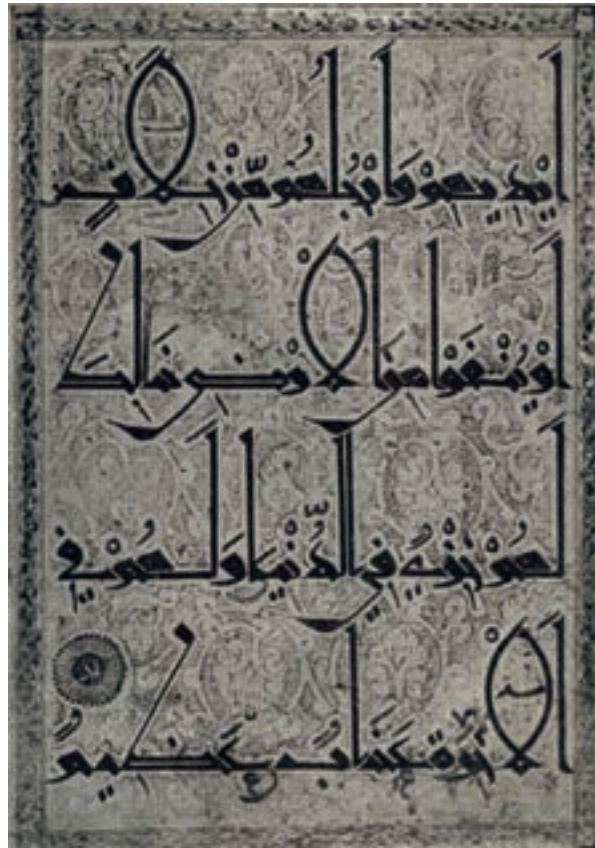 أَيْدِيهِمْ وَأَرْجُلُهُمْ مِّنْ خِلَافٍ
أَوْ يُنْفَوْا مِنَ الْأَرْضِ ذَٰلِكَ
لَهُمْ خِزْيٌ فِي الدُّنْيَا وَلَهُمْ فِي
الْآخِرَةِ عَذَابٌ عَظِيمٌ